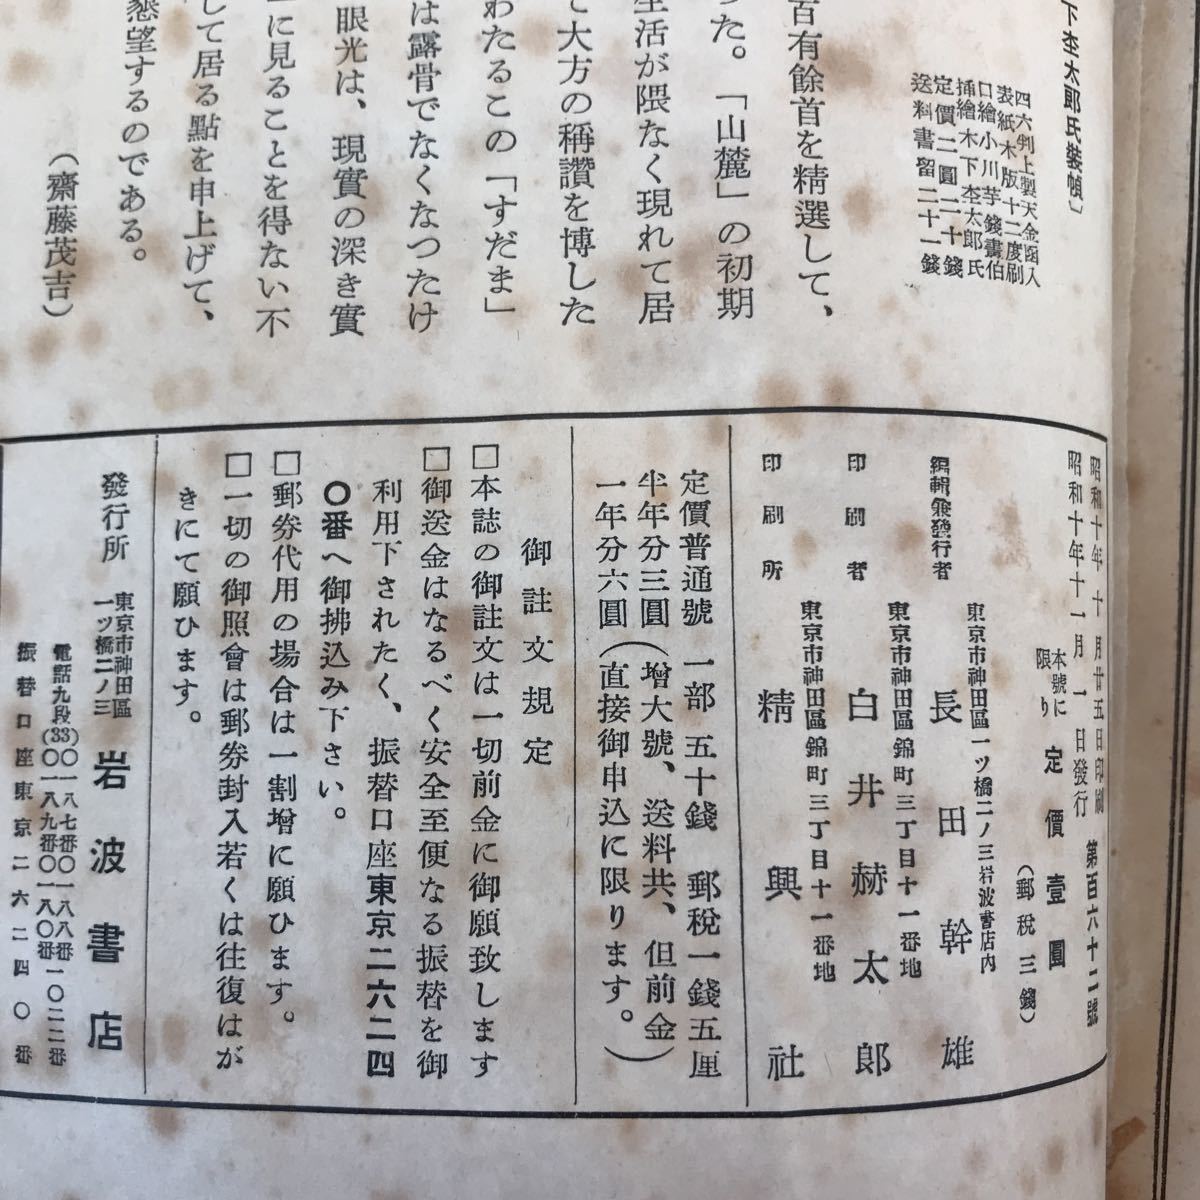 下杢太郎氏裝幀〕
四六判上製天金函入
表紙木版十二度刷
口繪小川芋錢畫伯
挿繪木下杢太郎氏
定價二圓二十錢
送料書留二十一錢
百有餘首を精選して、
った。「山麓」の初期
生活が隈なく現れて居
て大方の稱讚を博した
わたるこの「すだま」
は露骨でなくなつたけ
眼光は、現實の深き實
に見ることを得ない不
して居る點を申上げて、
懇望するのである。
(齋藤茂吉)
昭和十年十月廿五日印刷
昭和十年十一月一日發行
第百六十二號
本號に限り 定價壹圓
(郵稅三錢)
東京市神田區一ツ橋二ノ三岩波書店内
編輯兼發行者 長田幹雄
東京市神田區錦町三丁目十一番地
印刷者 白井赫太郎
東京市神田區錦町三丁目十一番地
印刷所 精興社
定價普通號 一部 五十錢 郵稅一錢五厘
半年分三圓(增大號、送料共、但前金
一年分六圓(直接御申込に限ります。)
御註文規定
□本誌の御註文は一切前金に御願致します
□御送金はなるべく安全至便なる振替を御
利用下されたく、振替口座東京二六二四
〇番へ御拂込み下さい。
□郵券代用の場合は一割增に願ひます。
□一切の御照會は郵券封入若くは往復はが
きにて願ひます。
發行所 東京市神田區一ツ橋二ノ三 岩波書店
電話九段(33)〇一八七番〇一八八番一〇二二番
〇一八九番〇一八〇番
振替口座東京二六二四〇番